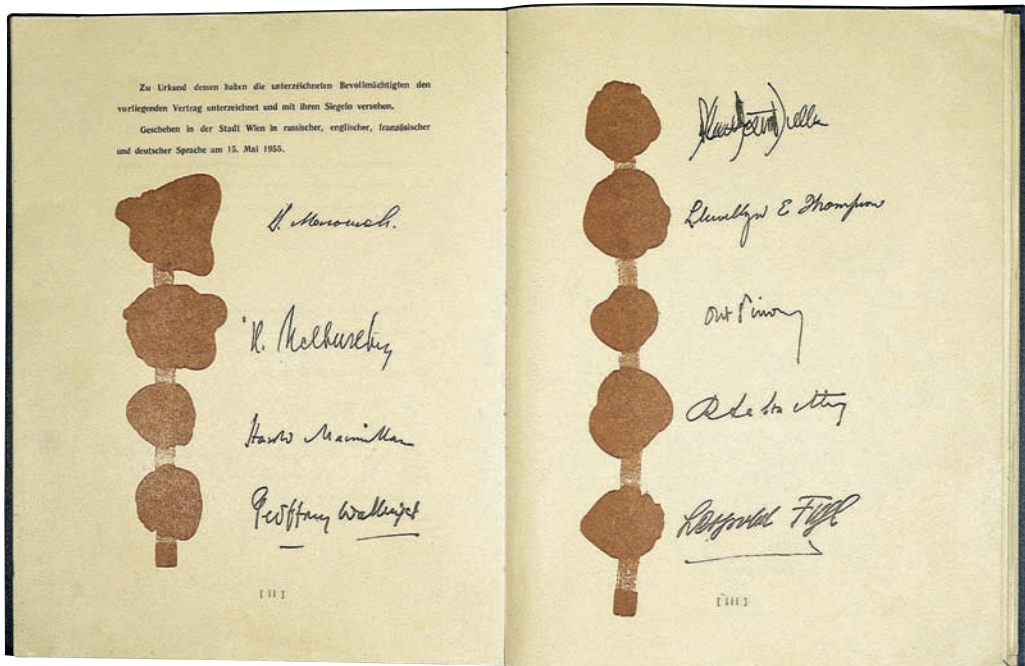 Zu Urkund dessen haben die unterzeichneten Bevollmächtigten den
vorliegenden Vertrag unterzeichnet und mit ihren Siegeln versehen.
Geschehen in der Stadt Wien in russischer, englischer, französischer
und deutscher Sprache am 15. Mai 1955.
Harold Macmillan
Geoffrey Wallinger
[ II ]
Llewellyn E Thompson
Leopold Figl
[ III ]